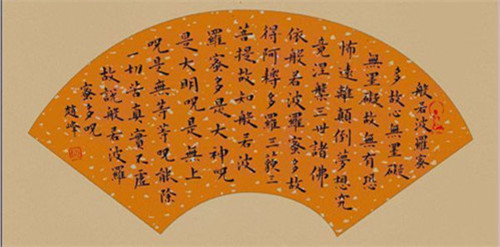 般若波羅蜜
多故心無罣礙
無罣礙故無有恐
怖遠離顛倒夢想究
竟涅槃三世諸佛
依般若波羅蜜多故
得阿耨多羅三藐三
菩提故知般若波
羅蜜多是大神呪
是大明呪是無上
呪是無等等呪能除
一切苦真實不虛
故說般若波羅
蜜多呪